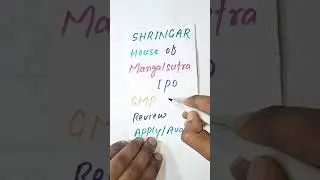 SHRINGAR
House of
Mangalsutra
IPO
GMP
Review
Apply/Avo